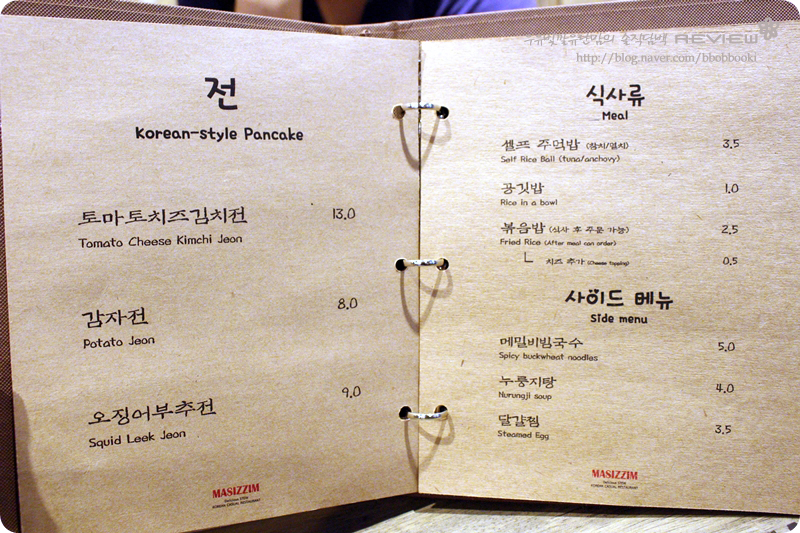 REVIEW
http://blog.naver.com/bbobbooki
전
Korean-style Pancake
토마토치즈김치전 13.0
Tomato Cheese Kimchi Jeon
감자전 8.0
Potato Jeon
오징어부추전 9.0
Squid Leek Jeon
MASIZZIM
KOREAN CASUAL RESTAURANT
식사류
Meal
셀프 주먹밥 (참치/멸치) 3.5
Self Rice Ball (tuna/anchovy)
공깃밥 1.0
Rice in a bowl
볶음밥 (식사 후 주문 가능) 2.5
Fried Rice (After meal can order)
치즈 추가 (Cheese topping) 0.5
사이드 메뉴
Side menu
메밀비빔국수 5.0
Spicy buckwheat noodles
누룽지탕 4.0
Nurungji soup
달걀찜 3.5
Steamed Egg
MASIZZIM
KOREAN CASUAL RESTAURANT